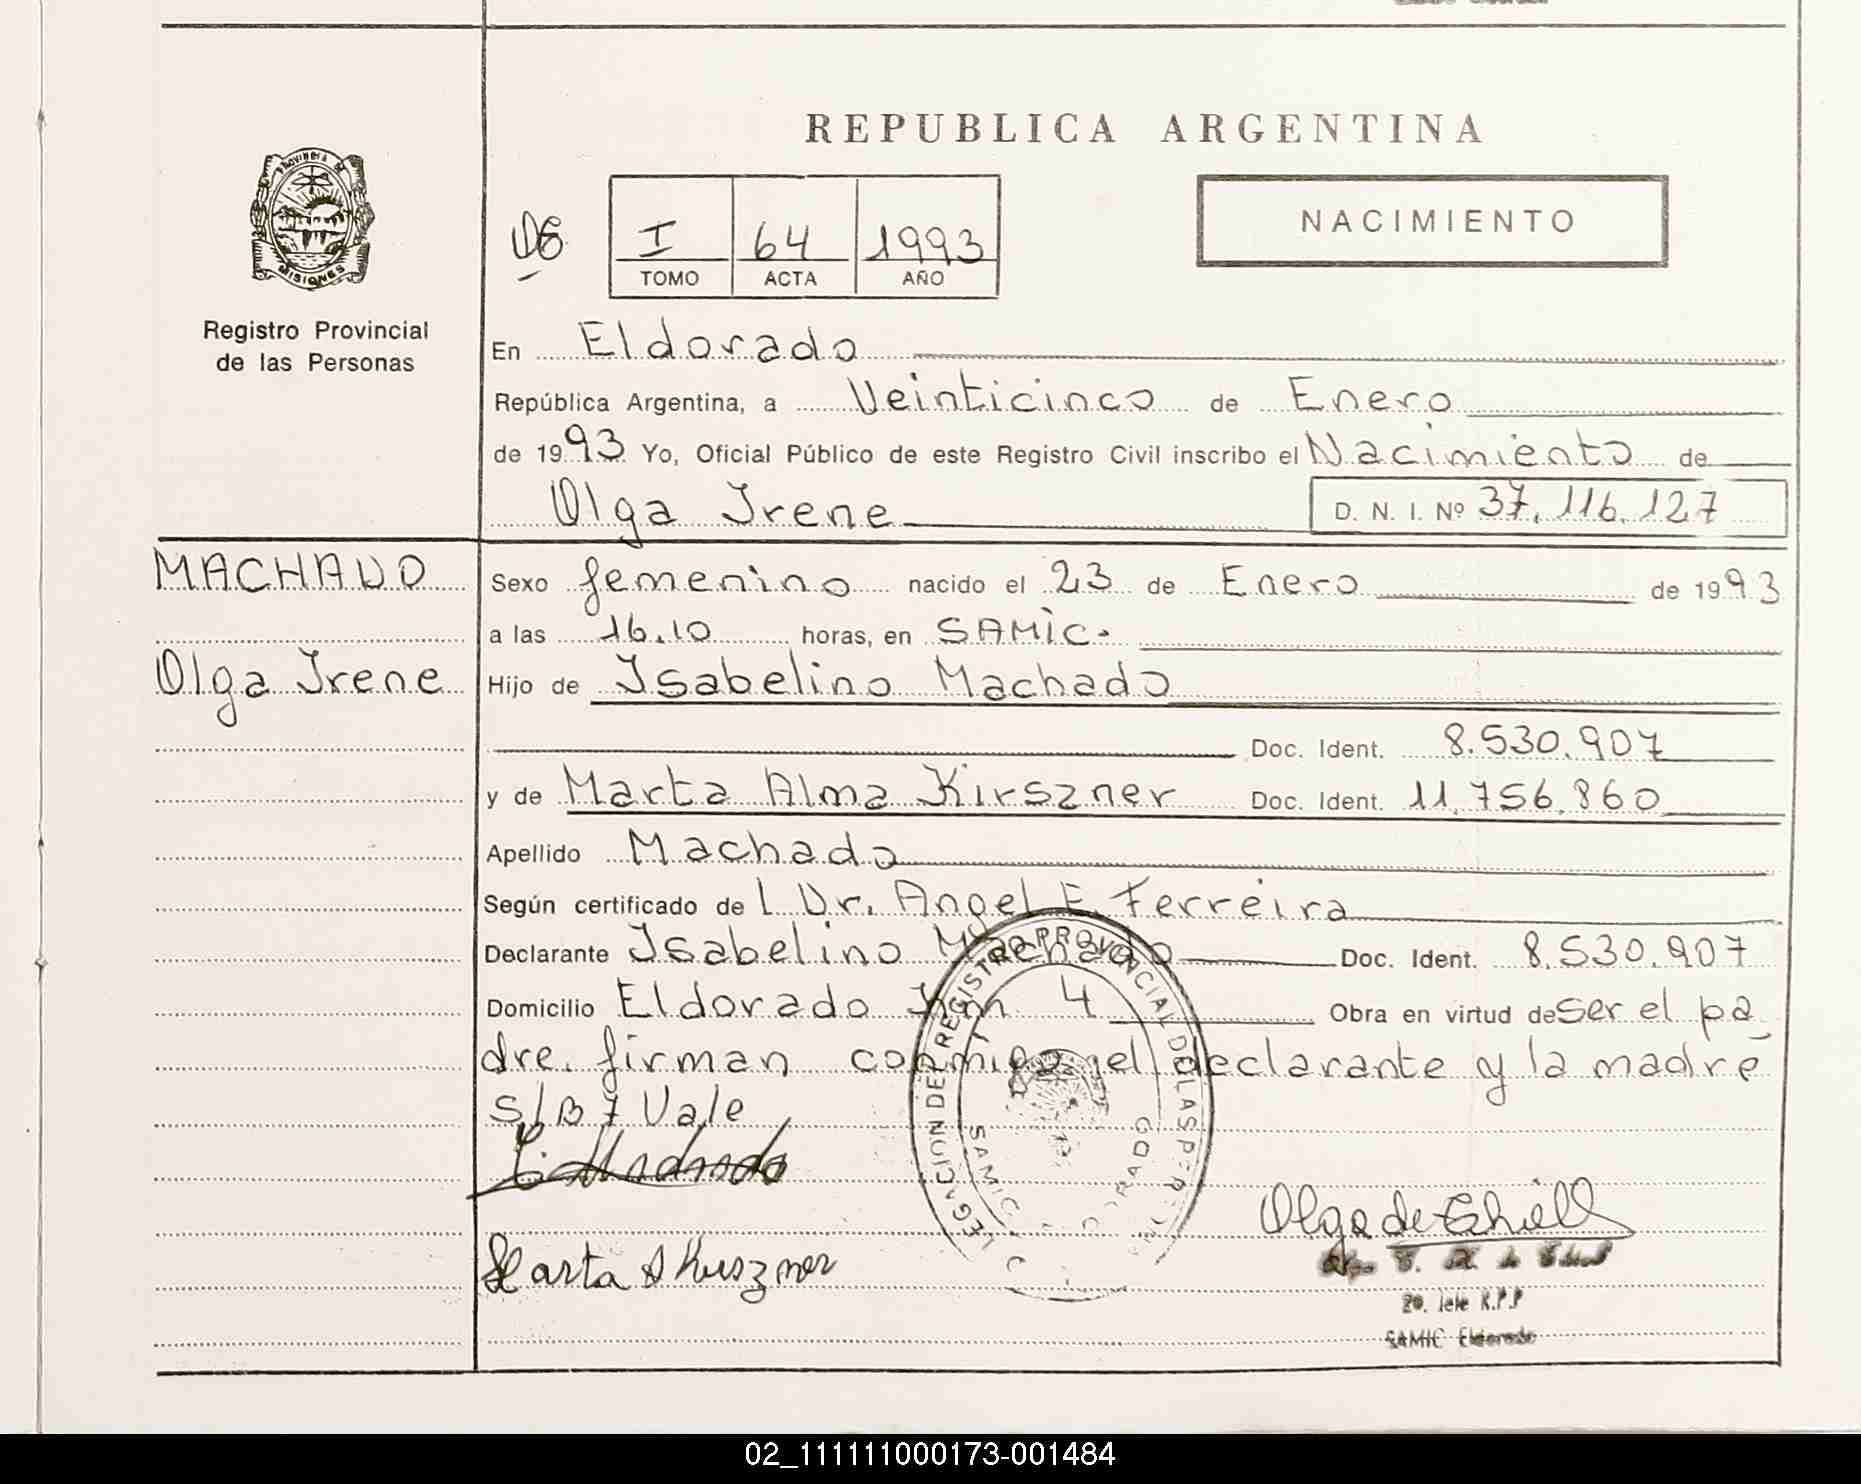 REPUBLICA ARGENTINA
PROVINCIA DE MISIONES
Registro Provincial
de las Personas
I 64 1993
TOMO ACTA AÑO
NACIMIENTO
En Eldorado
República Argentina, a Veinticinco de Enero
de 1993 Yo, Oficial Público de este Registro Civil inscribo el Nacimiento de
Olga Irene D. N. I. Nº 37.116.127
MACHADO
Olga Irene
Sexo femenino nacido el 23 de Enero de 1993
a las 16.10 horas, en SAMIC.
Hijo de Isabelino Machado
Doc. Ident. 8.530.907
y de Marta Alma Kirszner Doc. Ident. 11.756.860
Apellido Machado
Según certificado del Dr. Angel E. Ferreira
Declarante Isabelino Machado Doc. Ident. 8.530.907
Domicilio Eldorado Km 4 Obra en virtud de ser el pa
dre. firman conmigo el declarante y la madre
S/B 7 Vale
I. Machado
Marta A Kirszner
DELEGACION DEL REGISTRO PROVINCIAL DE LAS PER
SAMIC
Olga de
SAMIC Eldorado
02_111111000173-001484